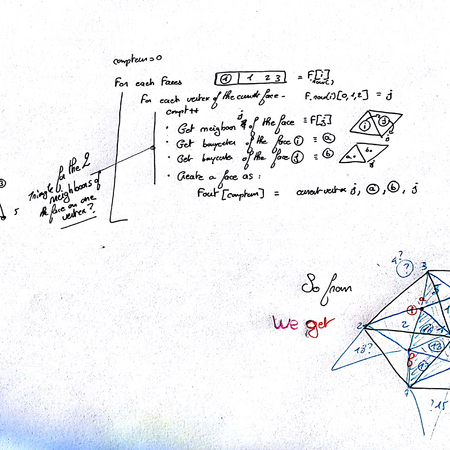 comptem = 0
For each Faces ① 1 2 3 = F[i]
For each vertex of the current face - F.row(i)[0,1,2] = j
compt++
• Get neighbor j of the face = F[j]
• Get baycenter of the face ⓘ = ⓐ
• Get baycenter of the face ⓙ = ⓑ
• Create a face as:
Fout [comptem] = current vertex j, ⓐ, ⓑ, j
Triangle for the 2
neighbors of
the face on one
vertex?
5
i j
a. b.
So from
we get
4? ?
3
5
1
2
2
13?
7
?15